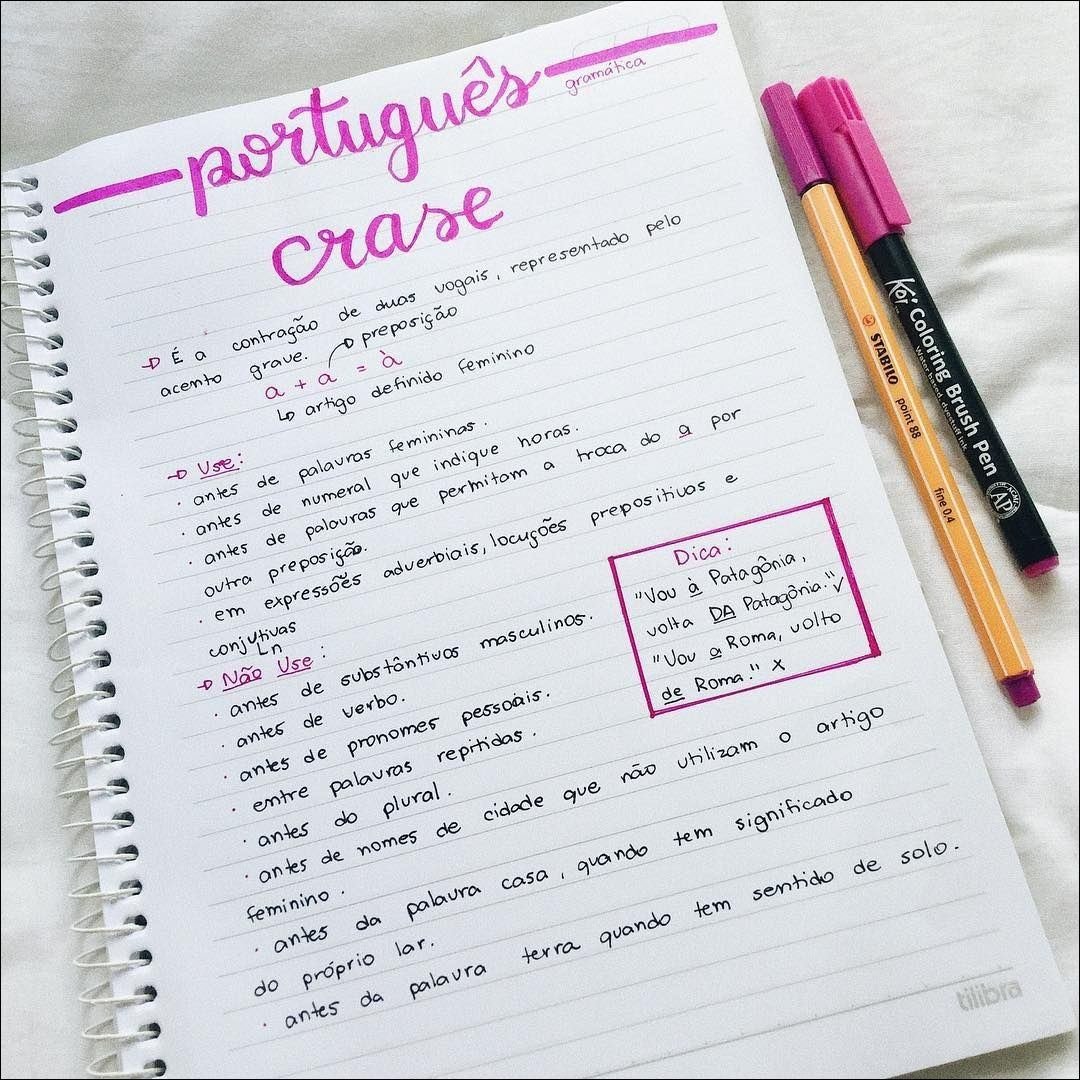 português
gramática
crase
→ É a contração de duas vogais, representado pelo
acento grave.
→ preposição
a + a = à
↳ artigo definido feminino
→ Use:
· antes de palavras femininas.
· antes de numeral que indique horas.
· antes de palavras que permitam a troca do a por
outra preposição.
· em expressões adverbiais, locuções prepositivas e
conjutivas
Ln
→ Não Use:
· antes de substântivos masculinos.
· antes de verbo.
· antes de pronomes pessoais.
· entre palavras repitidas.
· antes do plural.
· antes de nomes de cidade que não utilizam o artigo
feminino.
· antes da palavra casa, quando tem significado
do próprio lar.
· antes da palavra terra quando tem sentido de solo.
Dica:
"Vou à Patagônia,
volta DA Patagônia." √
"Vou a Roma, volto
de Roma." x
tilibra
STABILO point 88 fine 0,4
Koi Coloring Brush Pen
Water based, dyestuff ink
AP